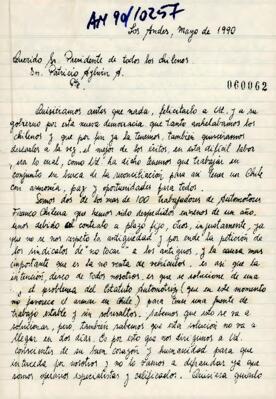 AN 90/10257
Los Andes, Mayo de 1990
Querido Sr. Presidente de todos los chilenos.
Dn. Patricio Aylwin A.
060062
Quisiéramos antes que nada, felicitarlo a Ud. y a su
gobierno por esta nueva democracia que tanto anhelábamos los
chilenos y que por fin ya la tenemos, también quisiéramos
desearles a la vez, el mejor de los éxitos en esta difícil labor,
para lo cual, como Ud. ha dicho tenemos que trabajar en
conjunto en busca de la reconciliación para así tener un Chile
con armonía, paz y oportunidades para todos.
Somos dos de los más de 100 trabajadores de Automotores
Franco Chilena que hemos sido despedidos en menos de un año.
Unos debido a contrato a plazo fijo, otros, injustamente, ya
que no se nos respetó la antigüedad y por ende la petición de
los sindicatos de "no tocar" a los antiguos, y la causa más
importante que es la no venta de vehículos. Es así que la
intención, deseo de todos nosotros, es que se solucione de una
y el problema del Estatuto Automotriz (que en este momento
no favorece el armar en Chile) para tener una fuente de
trabajo estable y sin sobresaltos. Sabemos que esto se va a
solucionar, pero también sabemos que esta solución no va a
llegar en dos días. Es por esto que nos dirigimos a Ud.
conscientes de su buen corazón y humanidad para que
interceda por nosotros y no lo vamos a defraudar ya que
somos operarios especialistas y calificados. Quisiera